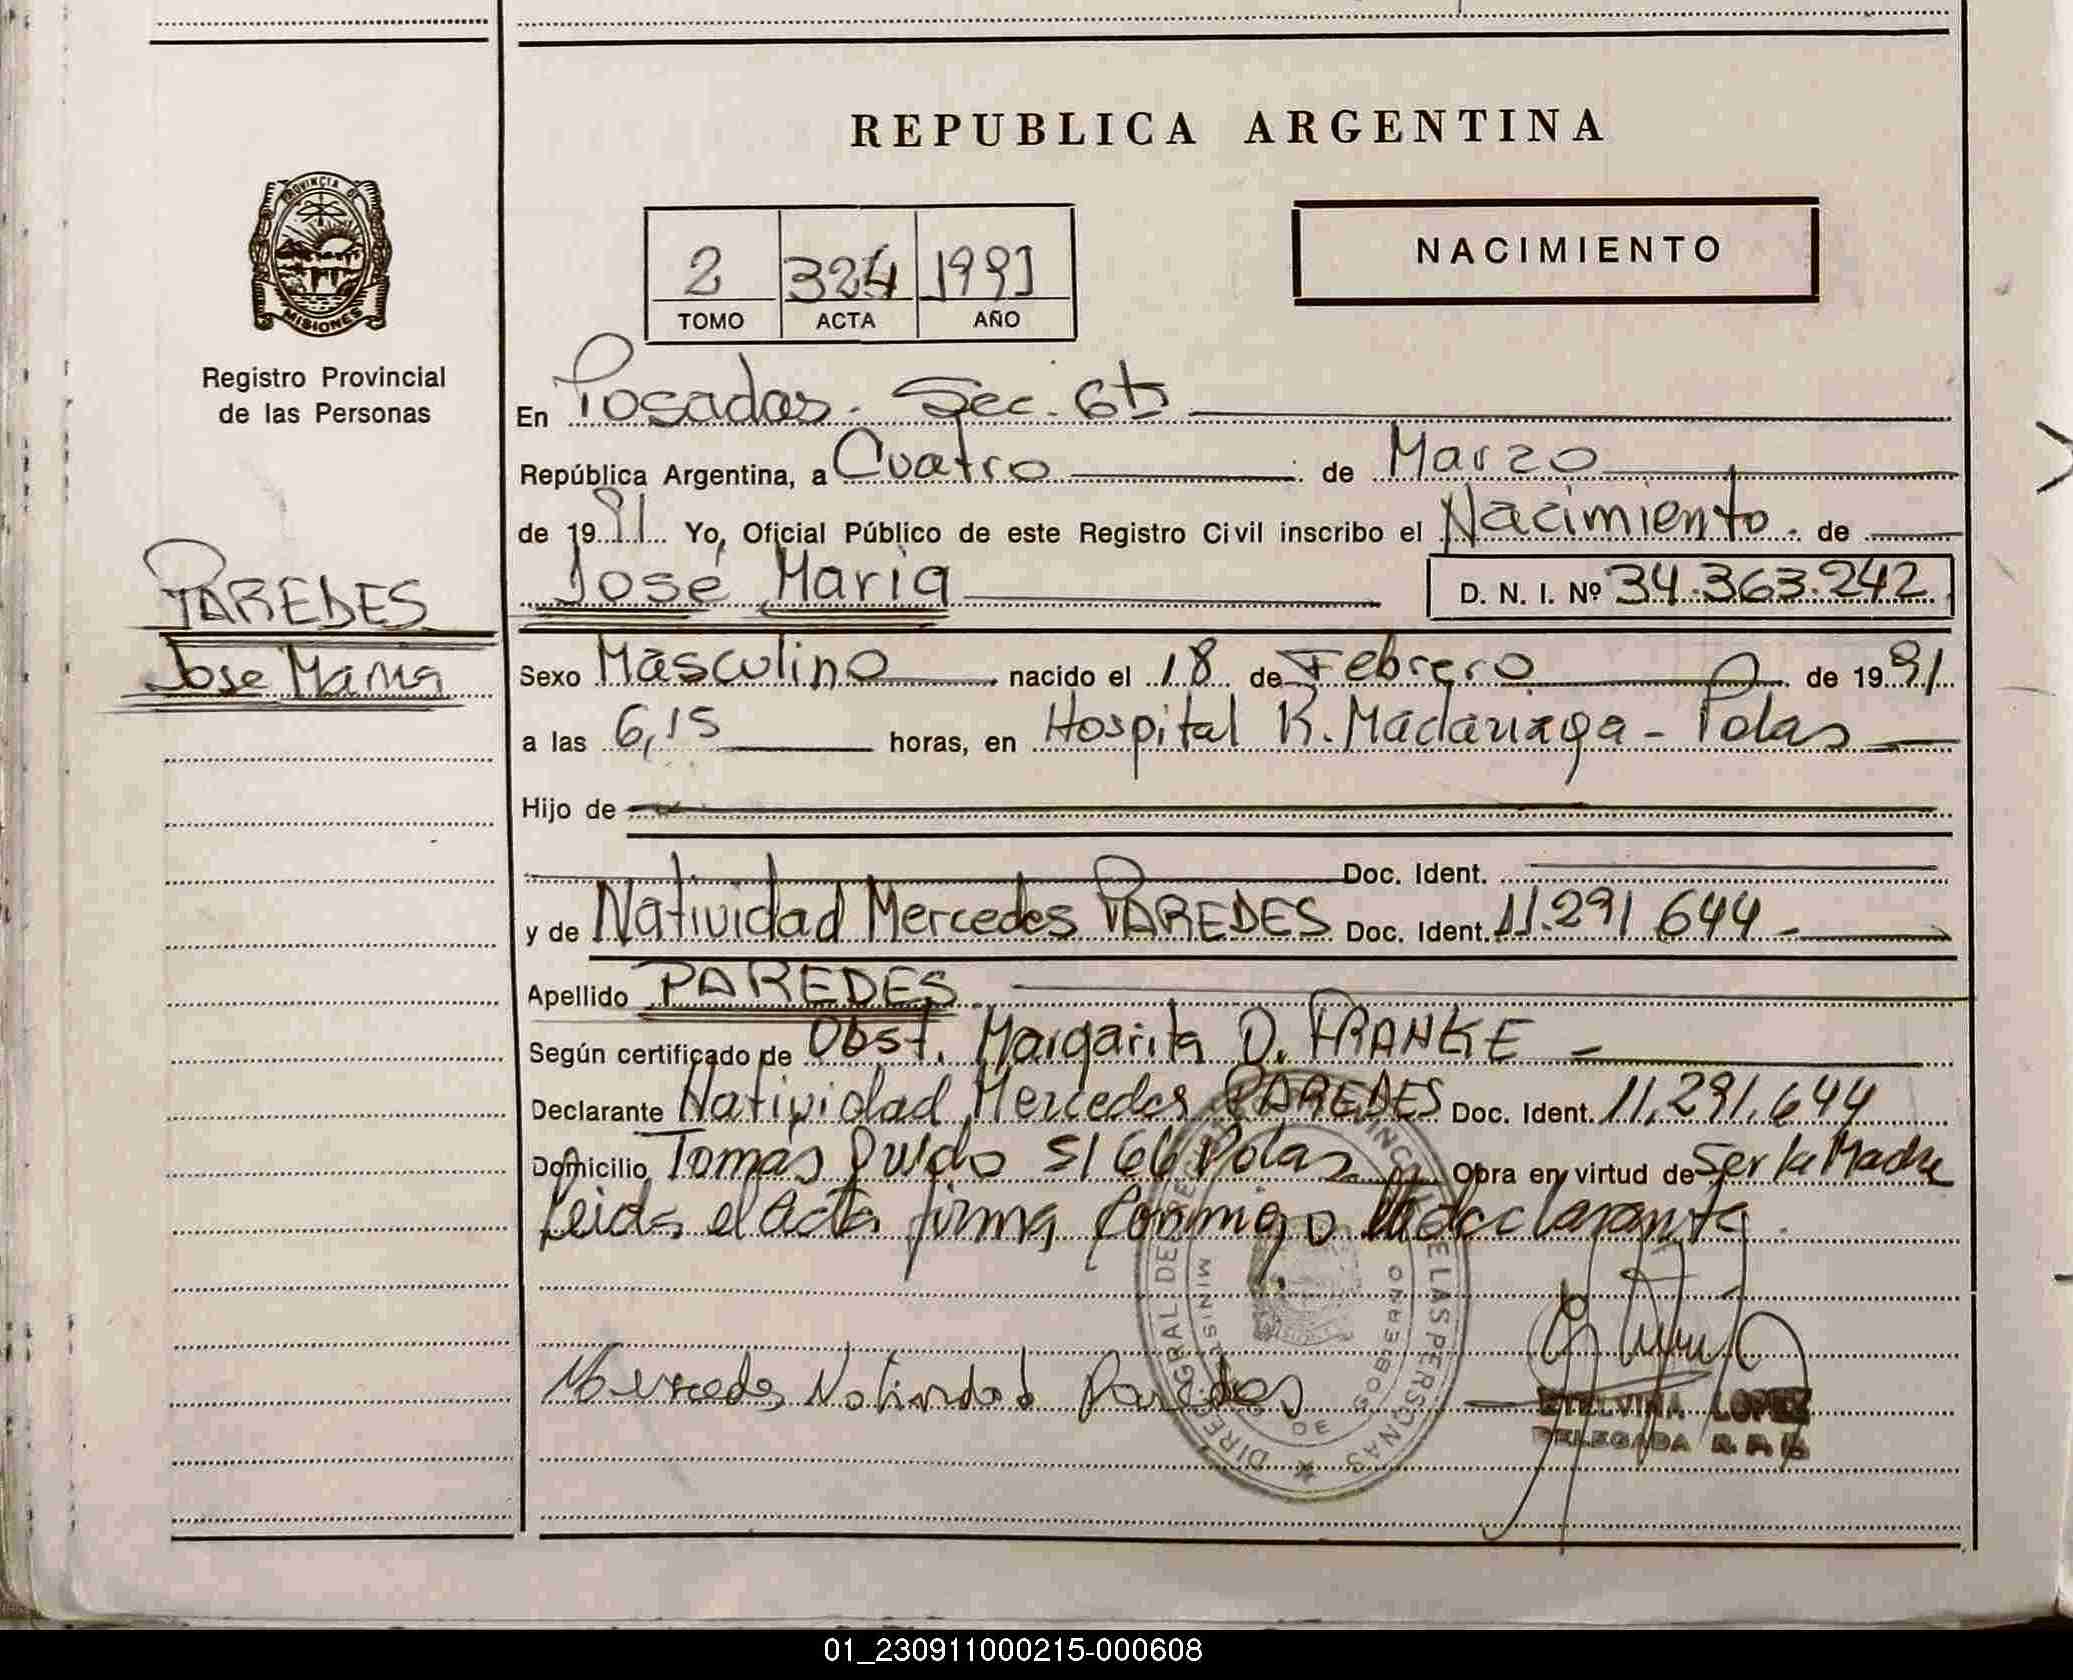 REPUBLICA ARGENTINA
PROVINCIA DE
MISIONES
Registro Provincial
de las Personas
NACIMIENTO
2 324 1991
TOMO ACTA AÑO
En Posadas. Sec. 6ta
República Argentina, a Cuatro de Marzo
de 1991 Yo, Oficial Público de este Registro Civil inscribo el Nacimiento. de
José Maria D. N. I. Nº 34.363.242
PAREDES
Jose Maria
Sexo Masculino nacido el 18 de Febrero de 1991
a las 6,15 horas, en Hospital R. Madariaga - Pdas
Hijo de
Doc. Ident.
y de Natividad Mercedes PAREDES Doc. Ident. 11.291 644 -
Apellido PAREDES
Según certificado de Obst. Margarita D. FRANKE -
Declarante Natividad Mercedes PAREDES Doc. Ident. 11.291.644
Domicilio Tomás Guido 5166 Pdas Obra en virtud de Ser la Madre
Leida el acta firma conmigo la declarante.
Mercedes Natividad Paredes
ETELVINA LOPEZ
DELEGADA R. P. P.
01_230911000215-000608